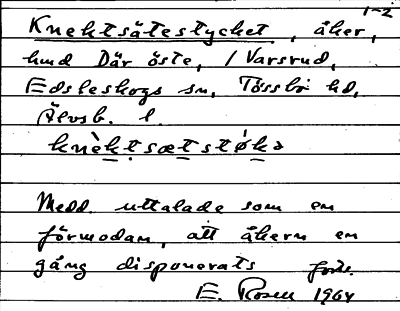 1-2
Knektsätestycket, åker,
hmd Där öste, / Varsrud,
Edsleskogs sn, Tössbo hd,
Älvsb. l.
knèktsætstøkə
Medd. uttalade som en
förmodan, att åkern en
gång disponerats forts.
E. Rosell 1964